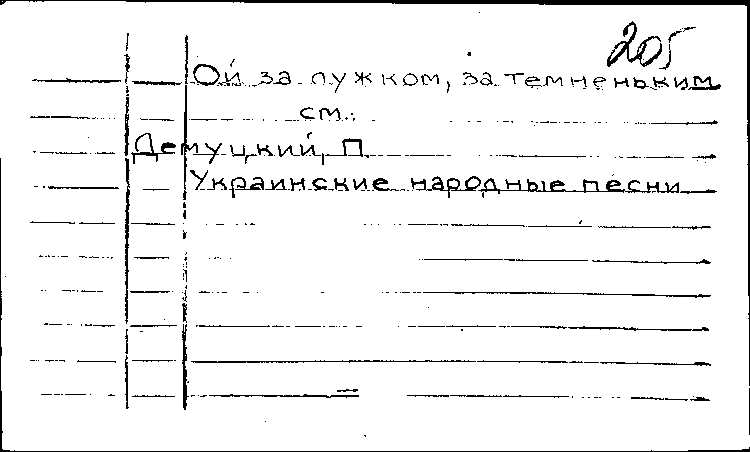 205
Ой за лужком, за темненьким
см.
Демуцкий, П
Украинские народные песни